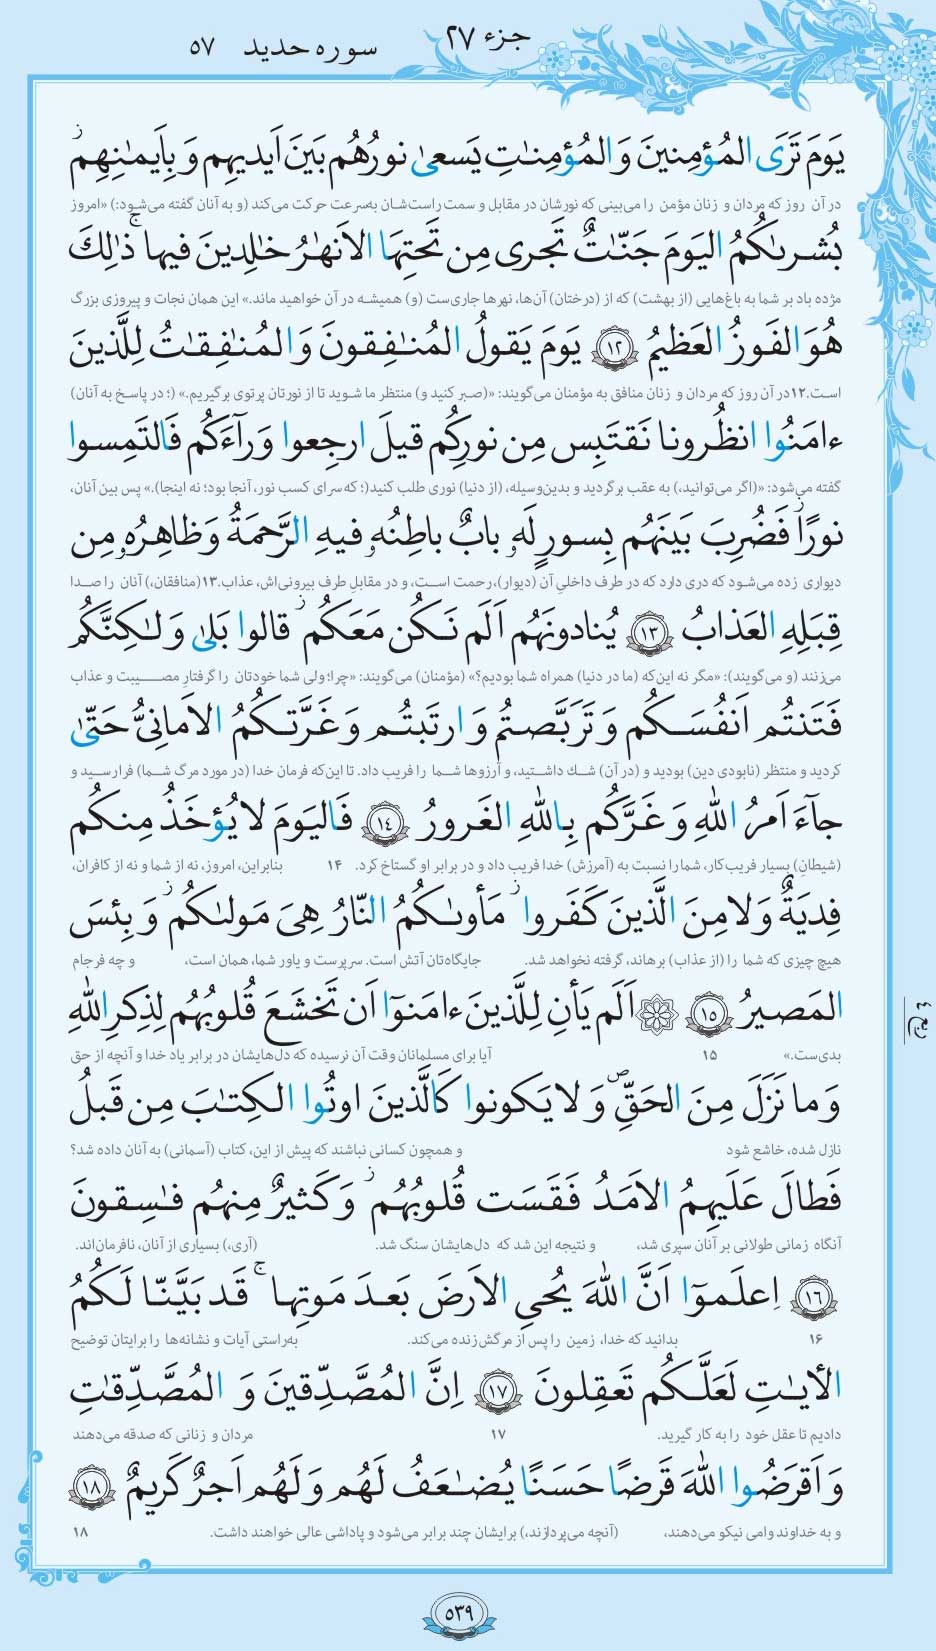 جزء ۲۷
سوره حدید ۵۷
يَومَ تَرَى المُؤمِنينَ وَ المُؤمِنـٰتِ يَسعىٰ نورُهُم بَينَ اَيديهِم وَ بِاَيمـٰنِهِم ز
در آن روز که مردان و زنان مؤمن را می‌بینی که نورشان در مقابل و سمت راست‌شان به‌سرعت حرکت می‌کند (و به آنان گفته می‌شود:) «امروز
بُشرىٰكُمُ اليَومَ جَنّـٰتٌ تَجرى مِن تَحتِهَا الاَنهـٰرُ خـٰلِدينَ فيها ۚ ذٰلِكَ
مژده باد بر شما به باغ‌هایی (از بهشت) که از (درختان) آن‌ها، نهرها جاری‌ست (و) همیشه در آن خواهید ماند.» این همان نجات و پیروزی بزرگ
هُوَ الفَوزُ العَظيمُ ۱۲ يَومَ يَقولُ المُنـٰفِقونَ وَ المُنـٰفِقـٰتُ لِلَّذينَ
است.۱۲در آن روز که مردان و زنان منافق به مؤمنان می‌گویند: «(صبر کنید و) منتظر ما شوید تا از نورتان پرتوی برگیریم.» (؛ در پاسخ به آنان)
ءامَنُوا انظُرونا نَقتَبِس مِن نورِكُم قيلَ ارجِعوا وَرآءَكُم فَالتَمِسوا
گفته می‌شود: «(اگر می‌توانید،) به عقب برگردید و بدین‌وسیله، (از دنیا) نوری طلب کنید(؛ که سرای کسب نور، آنجا بود؛ نه اینجا).» پس بین آنان،
نورًا ز فَضُرِبَ بَينَهُم بِسورٍ لَهٗ بابٌ باطِنُهٗ فيهِ الرَّحمَةُ وَ ظاهِرُهٗ مِن
دیواری زده می‌شود که دری دارد که در طرف داخلیِ آن (دیوار)، رحمت است، و در مقابلِ طرف بیرونی‌اش، عذاب.۱۳(منافقان،) آنان را صدا
قِبَلِهِ العَذابُ ۱۳ يُنادونَهُم اَلَم نَكُن مَعَكُم ز قالوا بَلىٰ وَلـٰكِنَّكُم
می‌زنند (و می‌گویند): «مگر نه این‌که (ما در دنیا) همراه شما بودیم؟» (مؤمنان) می‌گویند: «چرا؛ ولی شما خودتان را گرفتارِ مصیبت و عذاب
فَتَنتُم اَنفُسَكُم وَ تَرَبَّصتُم وَ ارتَبتُم وَ غَرَّتكُمُ الاَمانِىُّ حَتّىٰ
کردید و منتظر (نابودی دین) بودید و (در آن) شك داشتید، و آرزوها شما را فریب داد. تا این‌که فرمان خدا (در مورد مرگ شما) فرا رسید و
جآءَ اَمرُ اللهِ وَ غَرَّكُم بِاللهِ الغَرورُ ۱۴ فَاليَومَ لا يُؤخَذُ مِنكُم
(شیطانِ) بسیار فریب‌کار، شما را نسبت به (آمرزش) خدا فریب داد و در برابر او گستاخ کرد. ۱۴ بنابراین، امروز، نه از شما و نه از کافران،
فِديَةٌ وَ لا مِنَ الَّذينَ كَفَروا ز مَأوىٰكُمُ النّارُ هِىَ مَولىٰكُم ز وَ بِئسَ
هیچ چیزی که شما را (از عذاب) برهاند، گرفته نخواهد شد. جایگاه‌تان آتش است. سرپرست و یاور شما، همان است، و چه فرجام
المَصيرُ ۱۵ اَلَم يَأنِ لِلَّذينَ ءامَنوٓا اَن تَخشَعَ قُلوبُهُم لِذِكرِ اللهِ
ربع ٤
بدی‌ست.» ۱۵ آیا برای مسلمانان وقت آن نرسیده که دل‌هایشان در برابر یاد خدا و آنچه از حق
وَ ما نَزَلَ مِنَ الحَقِّ ص وَ لا يَكونوا كَالَّذينَ اوتُوا الكِتـٰبَ مِن قَبلُ
نازل شده، خاشع شود و همچون کسانی نباشند که پیش از این، کتاب (آسمانی) به آنان داده شد؟
فَطالَ عَلَيهِمُ الاَمَدُ فَقَسَت قُلوبُهُم ز وَ كَثيرٌ مِنهُم فـٰسِقونَ
آنگاه زمانی طولانی بر آنان سپری شد، و نتیجه این شد که دل‌هایشان سنگ شد. (آری،) بسیاری از آنان، نافرمان‌اند.
۱۶ اِعلَموٓا اَنَّ اللهَ يُحيِ الاَرضَ بَعدَ مَوتِها ۚ قَد بَيَّنّا لَكُمُ
۱۶ بدانید که خدا، زمین را پس از مرگش زنده می‌کند. به‌راستی آیات و نشانه‌ها را برایتان توضیح
الأيـٰتِ لَعَلَّكُم تَعقِلونَ ۱۷ اِنَّ المُصَّدِّقينَ وَ المُصَّدِّقـٰتِ
دادیم تا عقل خود را به کار گیرید. ۱۷ مردان و زنانی که صدقه می‌دهند
وَ اَقرَضُوا اللهَ قَرضًا حَسَنًا يُضـٰعَفُ لَهُم وَ لَهُم اَجرٌ كَريمٌ ۱۸
و به خداوند وامی نیکو می‌دهند، (آنچه می‌پردازند،) برایشان چند برابر می‌شود و پاداشی عالی خواهند داشت. ۱۸
۵۳۹